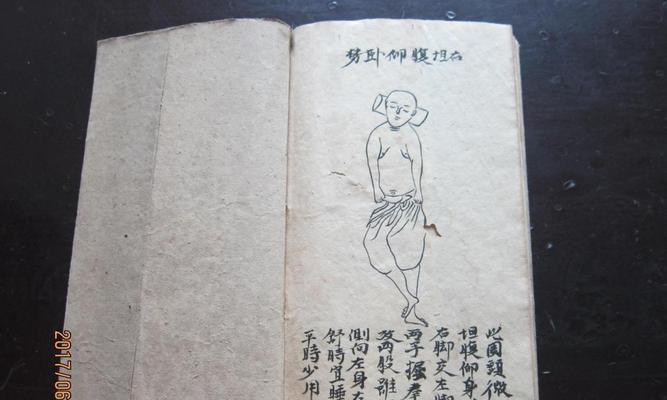 右坦腹仰卧势
此图頭微
坦腹仰身
右脚交左脚
両手握
双两股雖
側向左身右
舒時宜睡
平時少用
2017/06